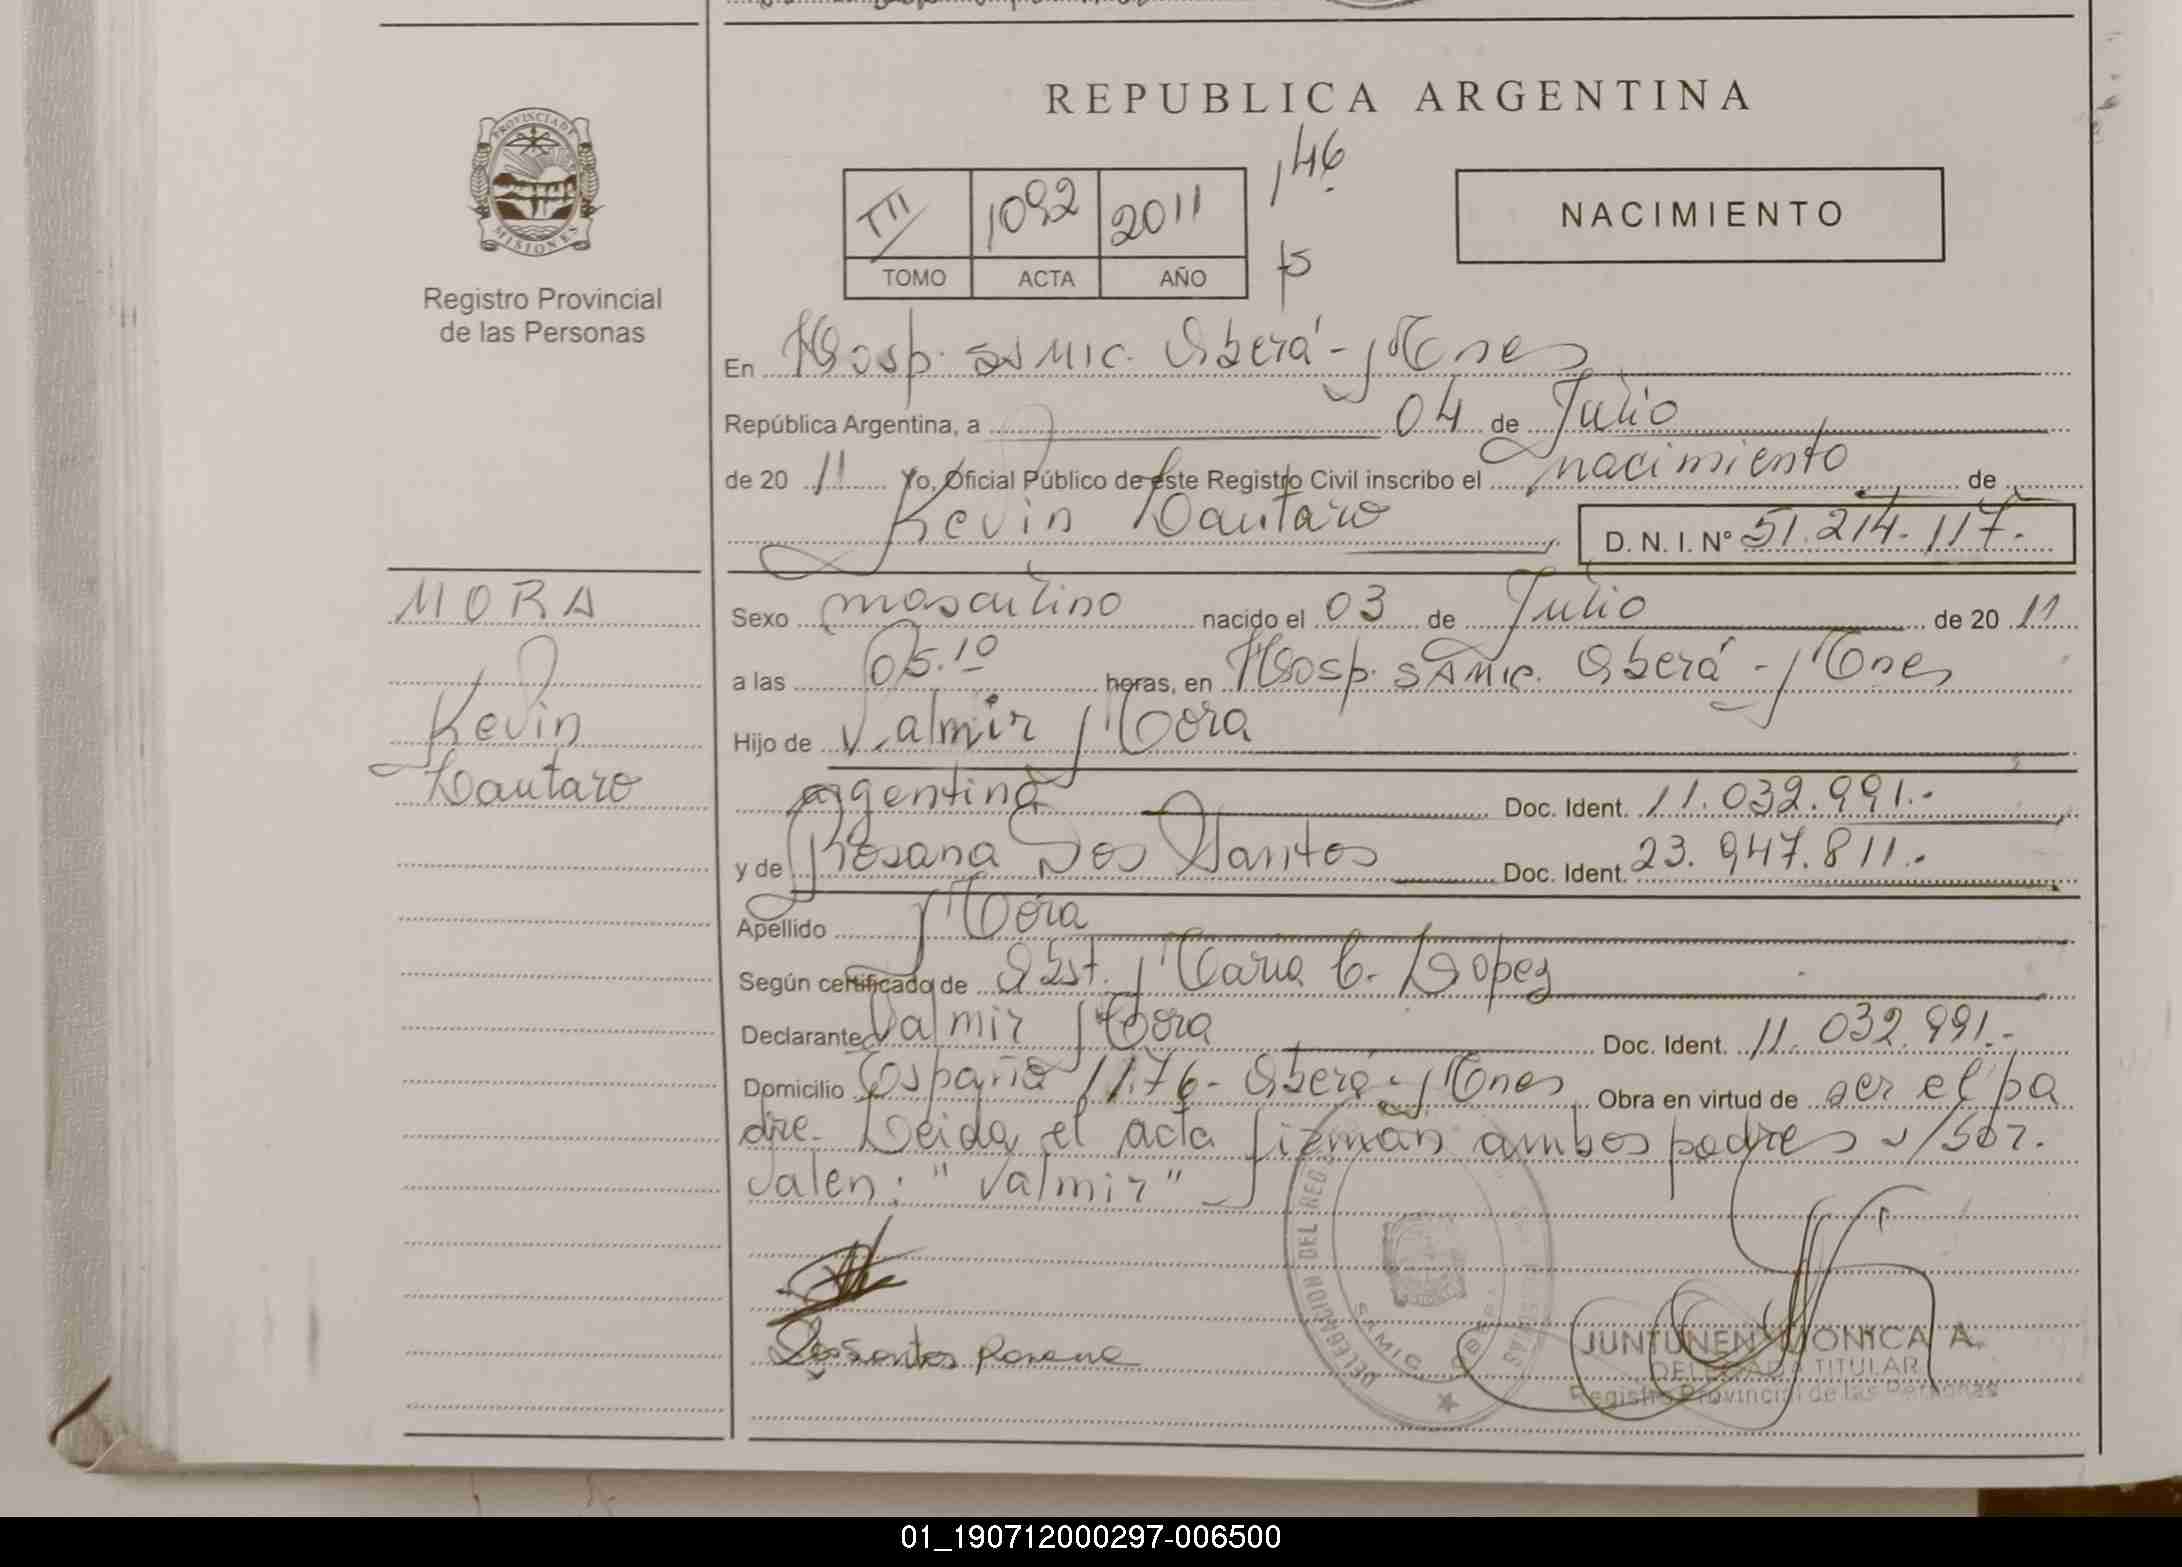 REPUBLICA ARGENTINA
PROVINCIA DE
MISIONES
Registro Provincial
de las Personas
TII 1092 2011
TOMO ACTA AÑO
146
NACIMIENTO
En Hosp. SAMIC. Oberá - Mnes
República Argentina, a 04 de Julio
de 20 11 Yo, Oficial Público de este Registro Civil inscribo el nacimiento de
Kevin Lautaro D. N. I. Nº 51.214.117.-
MORA
Kevin
Lautaro
Sexo masculino nacido el 03 de Julio de 20 11
a las 05.10 horas, en Hosp. SAMIC. Oberá - Mnes
Hijo de Valmir Mora
argentina Doc. Ident. 11.032.991.-
y de Rosana Dos Santos Doc. Ident. 23.947.811.-
Apellido Mora
Según certificado de Obst. Maria C. Lopez
Declarante Valmir Mora Doc. Ident. 11.032.991.-
Domicilio España 1176 - Oberá - Mnes Obra en virtud de ser el pa
dre. Leida el acta firman ambos padres s/bor.
Valen: "Valmir"
Dos Santos Rosana
DELEGACION DEL REG
SAMIC OBERA
JUNTUNEN MONICA A.
DELEGADA TITULAR
Registro Provincial de las Personas
01_190712000297-006500